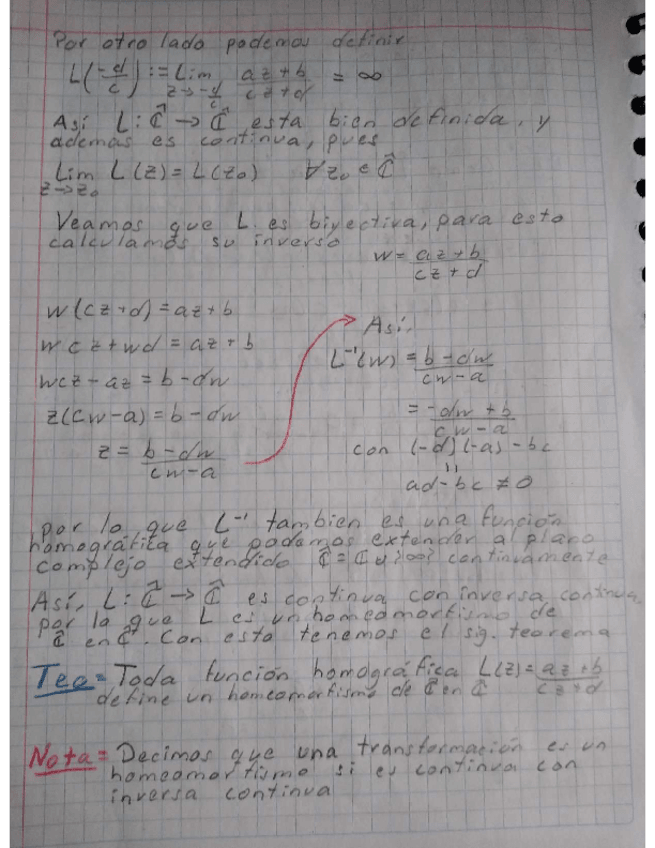 Por otro lado podemos definir
L(-d/c) := Lim z→-d/c (az+b)/(cz+d) = ∞
Así L: Ĉ → Ĉ esta bien definida, y
ademas es continua, pues
Lim z→z₀ L(z) = L(z₀) ∀z₀ ∈ Ĉ
Veamos que L es biyectiva, para esto
calculamos su inverso
w = (az+b)/(cz+d)
w(cz+d) = az+b
wcz+wd = az+b
wcz-az = b-dw
z(cw-a) = b-dw
z = (b-dw)/(cw-a)
Así,
L⁻¹(w) = (b-dw)/(cw-a)
= (-dw+b)/(cw-a)
con (-d)(-a)-bc
=
ad-bc ≠ 0
por lo que L⁻¹ tambien es una función
homográfica que podamos extender al plano
complejo extendido Ĉ = ℂ ∪ {∞} continuamente
Así, L: Ĉ → Ĉ es continua con inversa continua
por la que L es un homeomorfismo de
Ĉ en Ĉ. Con esto tenemos el sig. teorema
Teo= Toda función homográfica L(z) = (az+b)/(cz+d)
define un homeomorfismo de Ĉ en Ĉ
Nota= Decimos que una transformación es un
homeomorfismo si es continua con
inversa continua